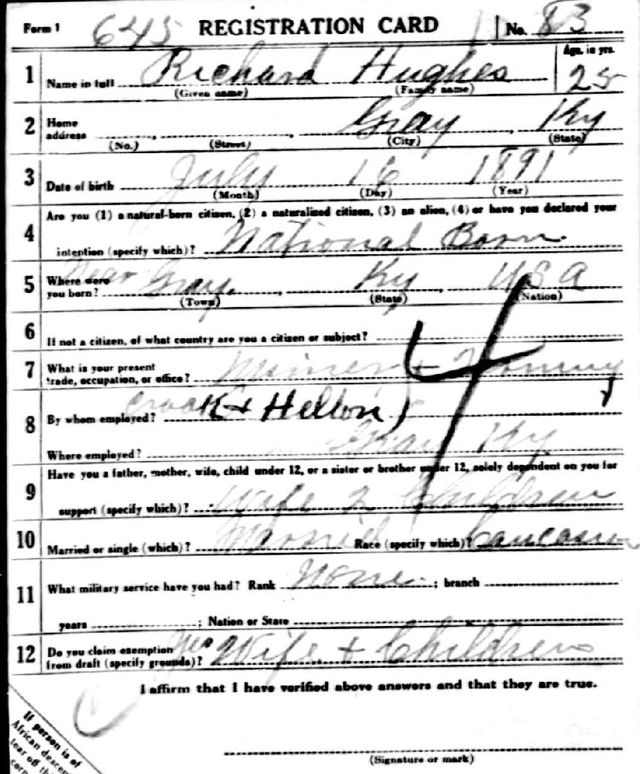 Form 1 645 REGISTRATION CARD No. 83
1 Name in full Richard Hughes Age, in yrs. 25
(Given name) (Family name)
2 Home address Gray, Ky
(No.) (Street) (City) (State)
3 Date of birth July 16 1891
(Month) (Day) (Year)
Are you (1) a natural-born citizen, (2) a naturalized citizen, (3) an alien, (4) or have you declared your
4 intention (specify which)? National Born
5 Where were you born? Near Gray, Ky USA
(Town) (State) (Nation)
6 If not a citizen, of what country are you a citizen or subject?
7 What is your present trade, occupation, or office? Miner +
4
8 By whom employed? + Helton
Where employed? Gray Ky
9 Have you a father, mother, wife, child under 12, or a sister or brother under 12, solely dependent on you for
support (specify which)? Wife 2 Children
10 Married or single (which)? Married Race (specify which)? Caucasian
11 What military service have you had? Rank None ; branch
years ; Nation or State
12 Do you claim exemption from draft (specify grounds)? Yes Wife + Children
I affirm that I have verified above answers and that they are true.
If person is of
African descent
tear off th
corn
(Signature or mark)